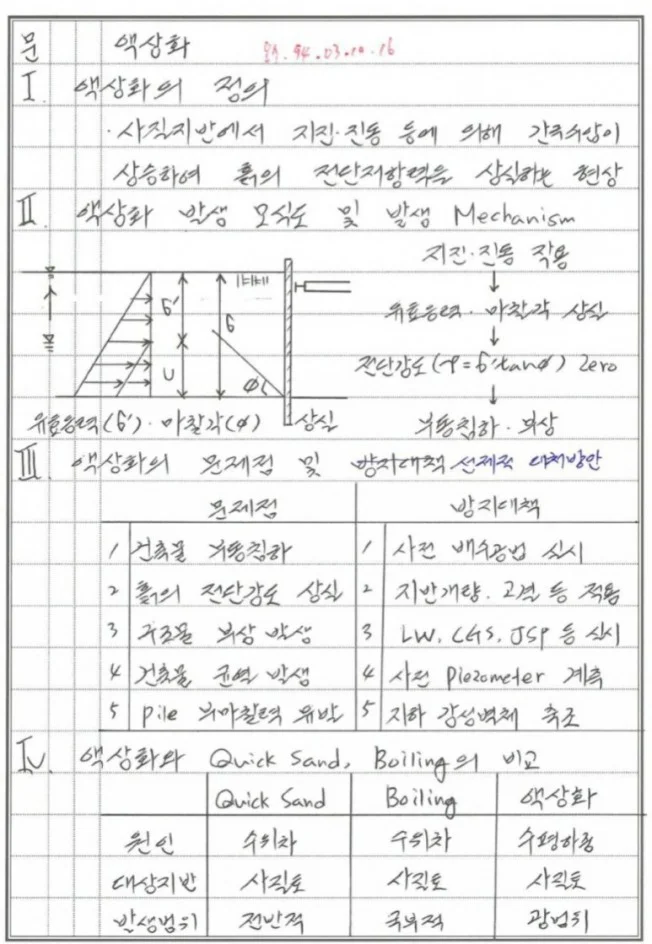 문 액상화 94.03.10.16
I. 액상화의 정의
·사질지반에서 지진·진동 등에 의해 간극수압이
상승하여 흙의 전단저항력을 상실하는 현상
II. 액상화 발생 모식도 및 발생 Mechanism
지진·진동 작용
↓
유효응력·마찰각 상실
↓
전단강도(τ=σ'tanφ) Zero
↓
부동침하·부상
σ' σ
U φ
유효응력(σ')·마찰각(φ) 상실
III. 액상화의 문제점 및 방지대책 선제적 대처방안
문제점 방지대책
1 건축물 부동침하 1 사전 배수공법 실시
2 흙의 전단강도 상실 2 지반개량. 고결 등 적용
3 구조물 부상 발생 3 LW. CGS. JSP 등 실시
4 건축물 균열 발생 4 사전 Piezometer 계측
5 Pile 부마찰력 유발 5 지하 강성벽체 축조
IV. 액상화와 Quick Sand, Boiling의 비교
Quick Sand Boiling 액상화
원인 수위차 수위차 수평하중
대상지반 사질토 사질토 사질토
발생범위 전반적 국부적 광범위